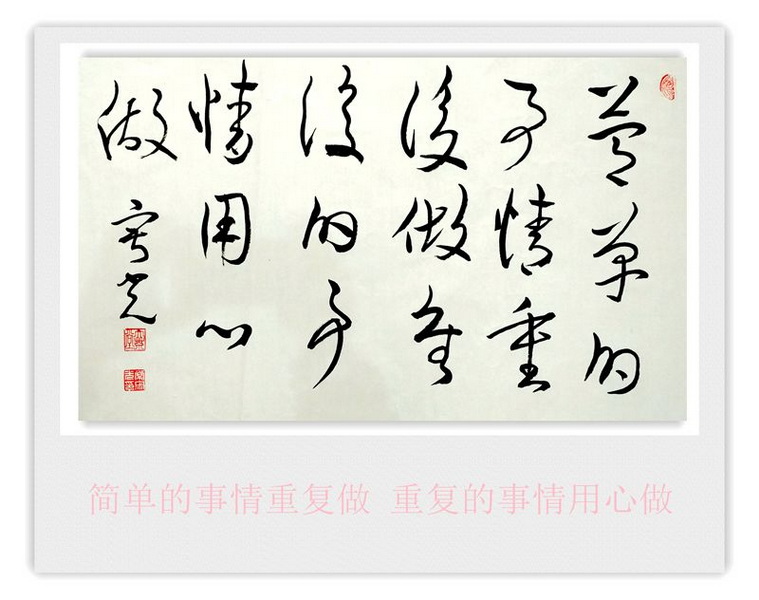 簡单的
事情重
復做重
復的事
情用心
做
简单的事情重复做 重复的事情用心做